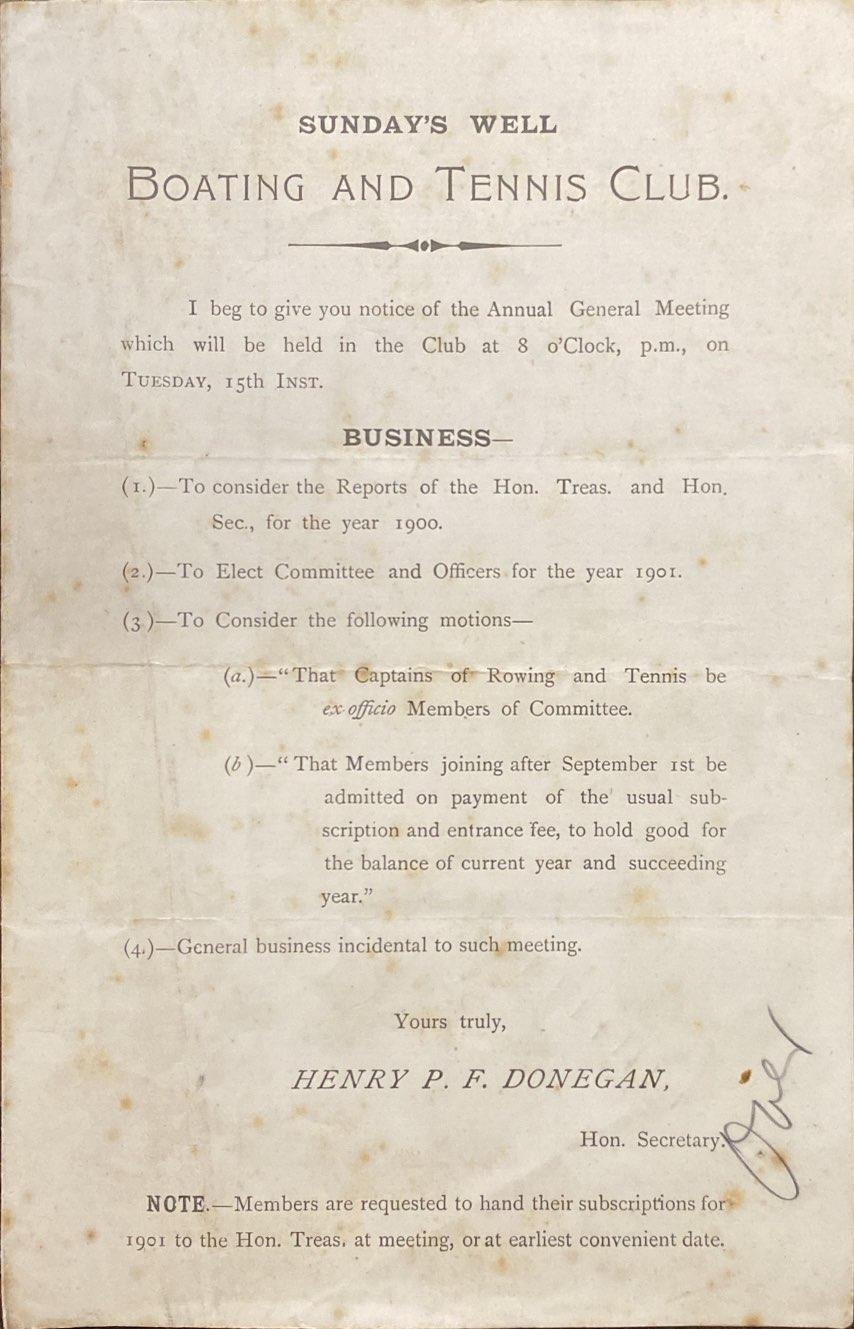 SUNDAY'S WELL
BOATING AND TENNIS CLUB.
I beg to give you notice of the Annual General Meeting
which will be held in the Club at 8 o'Clock, p.m., on
TUESDAY, 15th INST.
BUSINESS—
(1.)—To consider the Reports of the Hon. Treas. and Hon.
Sec., for the year 1900.
(2.)—To Elect Committee and Officers for the year 1901.
(3 )—To Consider the following motions—
(a.)—“That Captains of Rowing and Tennis be
ex-officio Members of Committee.
(b )—“ That Members joining after September 1st be
admitted on payment of the usual sub-
scription and entrance fee, to hold good for
the balance of current year and succeeding
year.”
(4.)—General business incidental to such meeting.
Yours truly,
HENRY P. F. DONEGAN,
Hon. Secretary.
Over
NOTE.—Members are requested to hand their subscriptions for
1901 to the Hon. Treas. at meeting, or at earliest convenient date.